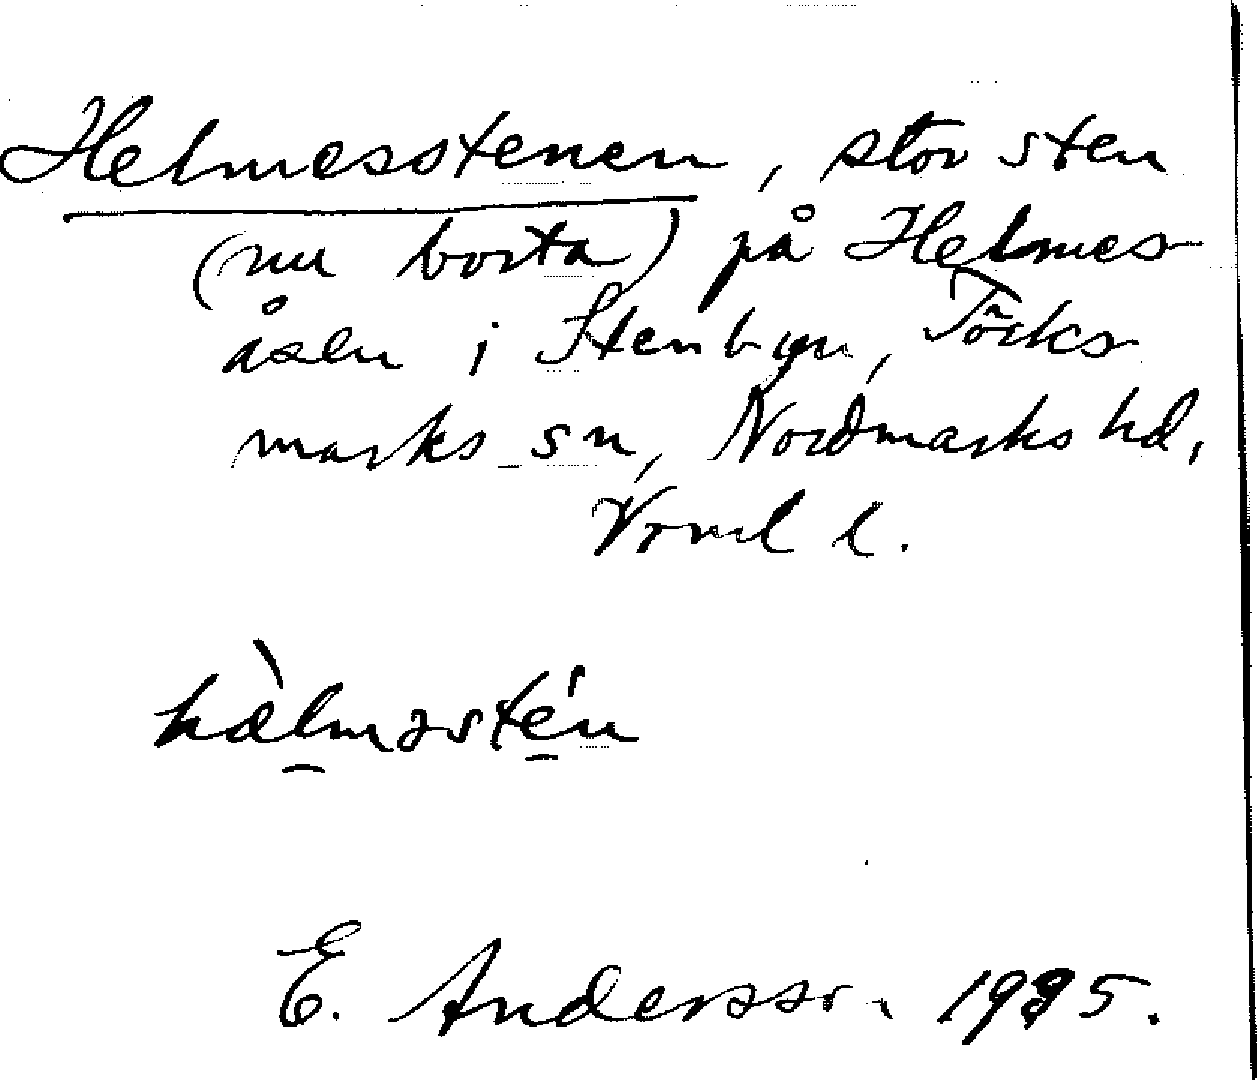 Helmesstenen, stor sten
(nu borta) på Helmes-
åsen i Stenbyn, Töcks-
marks sn, Nordmarks hd,
Vrml l.
hæ̀lməsté̄n
E. Andersson 1935.